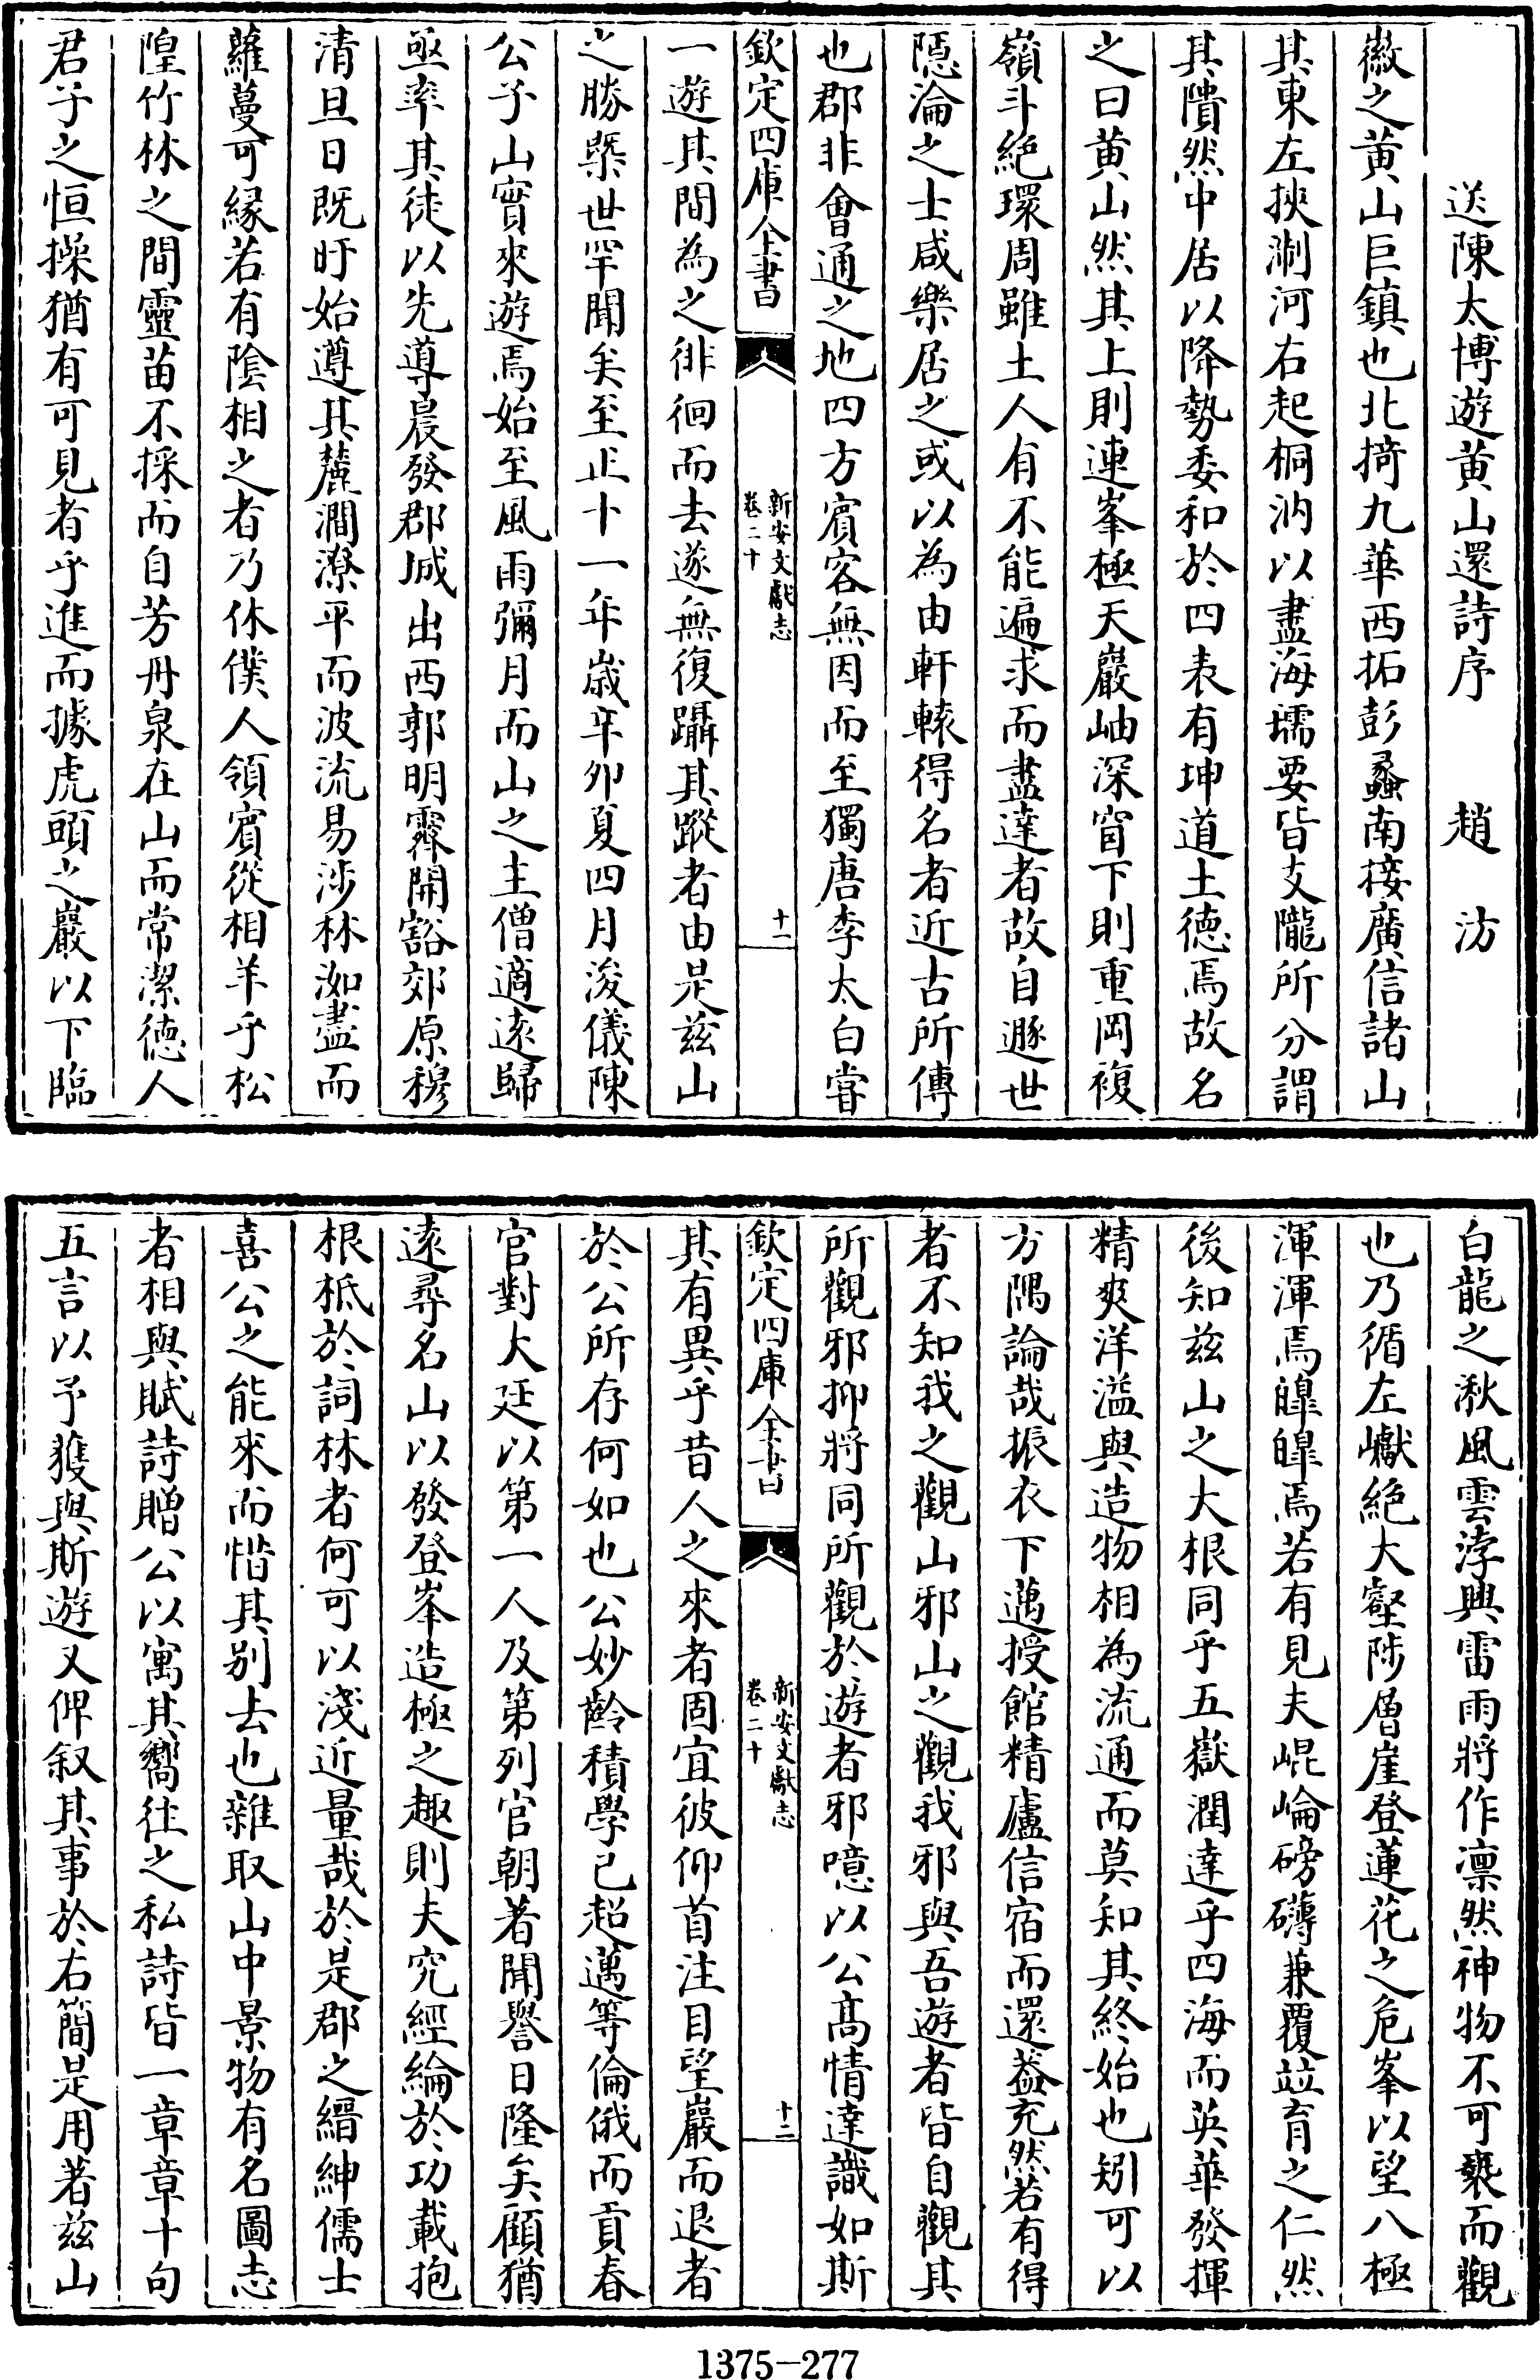 送陳太博遊黄山還詩序　趙汸
徽之黄山巨鎮也北掎九華西拓彭蠡南接廣信諸山
其東左挾淛河右起桐汭以盡海壖要皆支隴所分謂
其隤然中居以降勢委和於四表有坤道土德焉故名
之曰黄山然其上則連峯極天巖岫深窅下則重岡複
嶺斗絶環周雖土人有不能遍求而盡達者故自遯世
隱淪之士咸樂居之或以為由軒轅得名者近古所傳
也郡非會通之地四方賓客無因而至獨唐李太白嘗
欽定四庫全書
新安文獻志
卷二十
十一
一遊其間為之徘徊而去遂無復躡其蹤者由是兹山
之勝槩世罕聞矣至正十一年歳辛卯夏四月浚儀陳
公子山實來遊焉始至風雨彌月而山之主僧適逺歸
亟率其徒以先導晨發郡城出西郭明霽開豁郊原穆
清旦日既旴始遵其麓澗潦平而波流易涉林洳盡而
蘿蔓可縁若有陰相之者乃休僕人領賓從相羊乎松
隍竹林之間靈苗不採而自芳丹泉在山而常潔德人
君子之恒操猶有可見者乎進而據虎頭之巖以下臨
白龍之湫風雲浡興雷雨將作凛然神物不可褻而觀
也乃循左巘絶大壑陟層崖登蓮花之危峯以望八極
渾渾焉皥皥焉若有見夫崐崘磅礴兼覆竝育之仁然
後知兹山之大根同乎五嶽潤達乎四海而英華發揮
精爽洋溢與造物相為流通而莫知其終始也矧可以
方隅論哉振衣下邁授館精廬信宿而還葢充然若有得
者不知我之觀山邪山之觀我邪與吾遊者皆自觀其
所觀邪抑將同所觀於遊者邪噫以公髙情達識如斯
欽定四庫全書
新安文獻志
卷二十
十二
其有異乎昔人之來者固宜彼仰首注目望巖而退者
於公所存何如也公妙齡積學已超邁等倫俄而貢春
官對大廷以第一人及第列官朝著聞譽日隆矣顧猶
逺尋名山以發登峯造極之趣則夫究經綸於功載抱
根柢於詞林者何可以淺近量哉於是郡之縉紳儒士
喜公之能來而惜其别去也雜取山中景物有名圖志
者相與賦詩贈公以寓其嚮往之私詩皆一章章十句
五言以予獲與斯遊又俾叙其事於右簡是用著兹山
1375-277